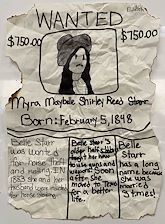 WANTED
$750.00
$750.00
Myra Maybelle Shirley Reed Starr
Born: February 5, 1848
Belle Starr
was wanted
for horse theft
and
in
1883 she and her
husband were
horse stealing.
Belle Starr's
older half
taught her how
to use guns and
weapons. Soon
after
moved to Texas
for a better
life.
Belle
Starr
has a long
name because
she was
married
3 times!